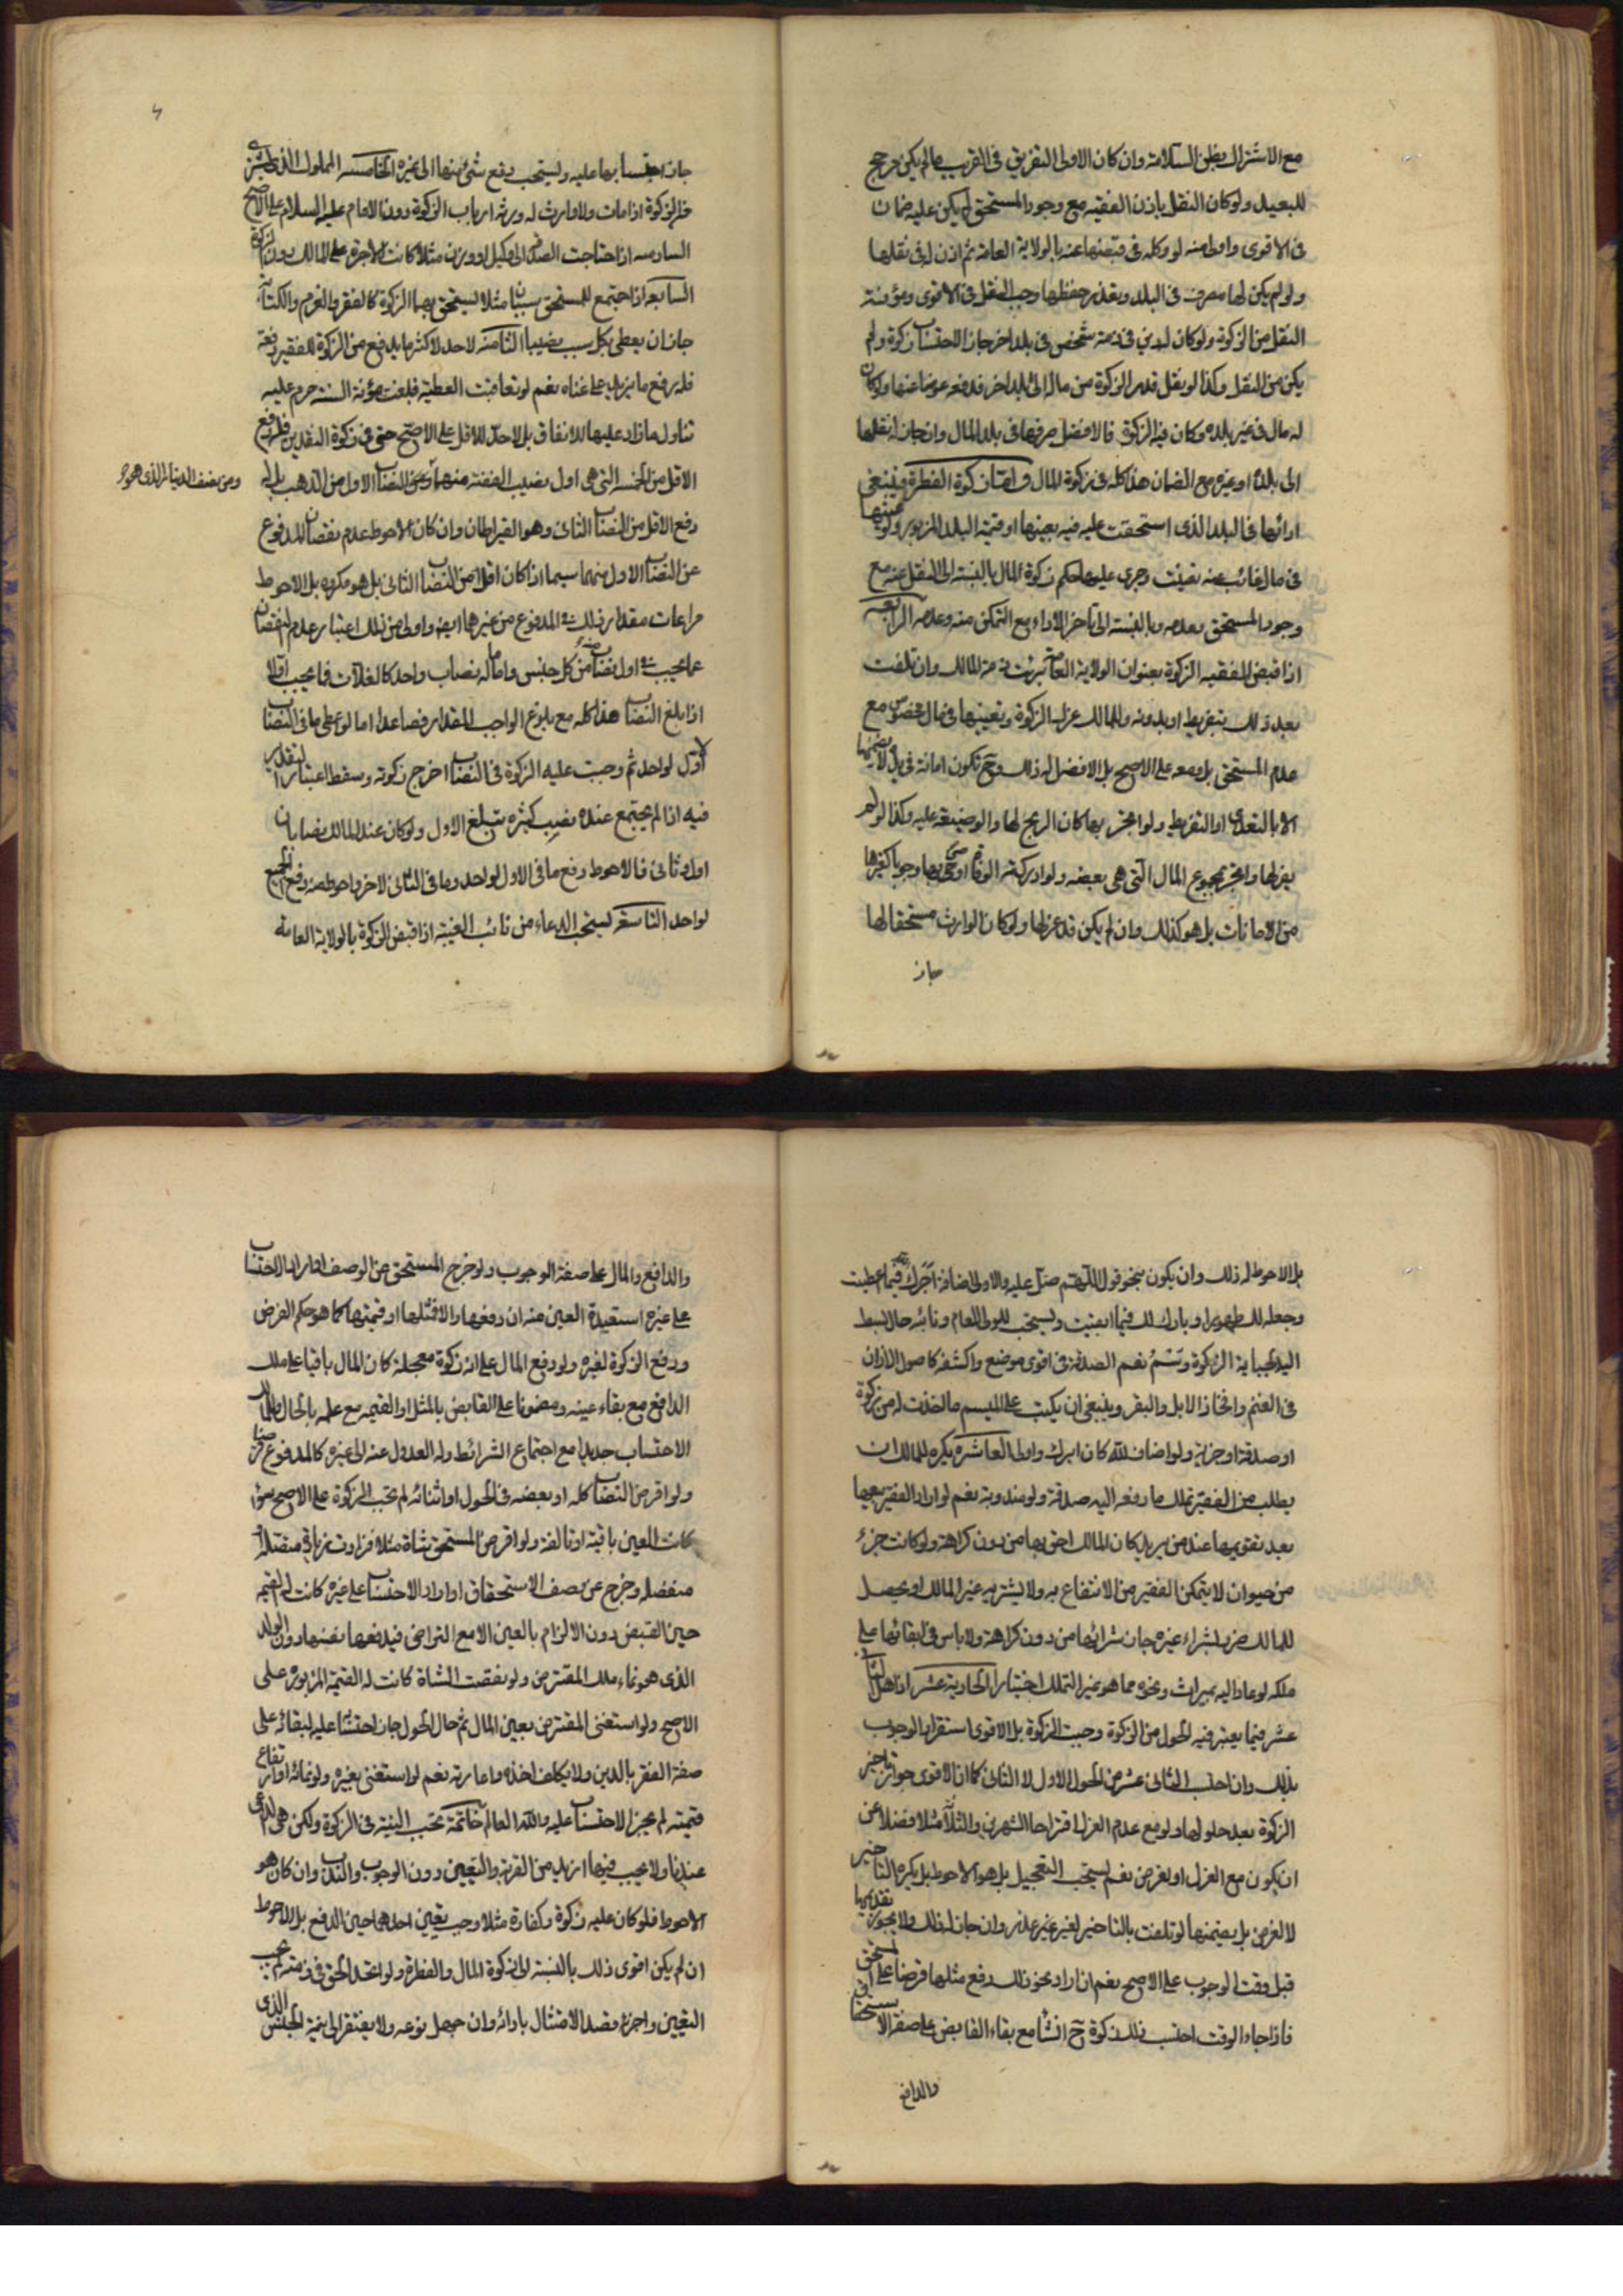 مع الاشتراك بظن السلامة وان كان الاولى التفريق فى القريب ما لم يكن مرجح
للبعيد ولو كان النقل باذن الفقيه مع وجود المستحق لم يكن عليه ضمان
فى الاقوى واولى منه لو وكله فى قبضها عنه بالولاية العامة ثم اذن له فى نقلها
ولو لم يكن لها مصرف فى البلد وتعذر حفظها وجب النقل فى الاقوى ومؤنة
النقل من الزكوة ولو كان له دين فى ذمة شخص فى بلد اخر جاز الاحتساب زكوة ولم
يكن من النقل وكذا لو نقل قدر الزكوة من ماله الى بلد اخر فدفعه عوضا عنها ولو كان
له مال فى غير بلده وكان فيه الزكوة فالافضل صرفها فى بلد المال وان جاز له نقلها
الى بلده او غيره مع الضمان هذا كله فى زكوة المال واما زكوة الفطرة فينبغى
ادائها فى البلد الذى استحقت عليه فيه بعينها او قيمة البلد المزبور ولو عينها
فى مال غائب عنه تعينت وجرى عليها حكم زكوة المال بالنسبة الى النقل عنه مع
وجود المستحق وعدمه وبالنسبة الى تأخر الاداء مع التمكن منه وعدمه الرابعة
اذا قبض الفقيه الزكوة بعنوان الولاية العامة برئت ذمة المالك وان تلفت
بعد ذلك بتفريط او بدونه وللمالك عزل الزكوة وتعيينها فى مال مخصوص مع
عدم المستحق بل ومعه على الاصح بل الافضل له ذلك وح تكون امانة فى يده لا يضمنها
الا بالتعدى او التفريط ولو اتجر بها كان الربح لها والوضيعة عليه وكذا لو لم
يعزلها واتجر بمجموع المال التى هى بعضه ولو ادركته الوفاة اوصى بها وجوبا كغيرها
من الامانات بل هو كذلك وان لم يكن قد عزلها ولو كان الوارث مستحقا لها
جاز
جاز احتسابها عليه ويستحب دفع شئ منها الى غيره الخامسة المملوك الذى يشترى
من الزكوة اذا مات ولا وارث له ورثه ارباب الزكوة دون الامام عليه السلام على الاصح
السادسة اذا احتاجت الصدقة الى كيل او وزن مثلا كانت الاجرة على المالك دون الزكوة
السابعة اذا اجتمع للمستحق سببان مثلا يستحق بهما الزكوة كالفقر والغرم والكتابة
جاز ان يعطى بكل سبب نصيبا الثامنة لا حد لاكثر ما يدفع من الزكوة للفقير دفعة
فله دفع ما يزيد على غناه نعم لو تعاقبت العطية فبلغت مؤنة السنة حرم عليه
تناول ما زاد عليها للانفاق بل لا حد للاقل على الاصح حتى فى زكوة النقدين فله دفع
الاقل من الخمسة التى هى اول نصيب الفضة منهما النصاب الاول من الذهب بل له
ومن نصف الدينار الذى هو
دفع الاقل من النصاب الثانى وهو القيراطان وان كان الاحوط عدم نقصان المدفوع
عن النصاب الاول منهما سيما اذا كان اقل من النصاب الثانى بل هو مكروه بل الاحوط
مراعات مقدار ذلك فى المدفوع من غيرها ايضا واولى من ذلك اعتبار عدم النقصان
عما يجب فى اول نصاب من كل جنس واما ما له نصاب واحد كالغلات فما يجب اقلا
اذا بلغ النصاب هذا كله مع بلوغ الواجب المقدار فصاعدا اما لو اعطى ما فى النصاب
الاول لواحد ثم وجبت عليه الزكوة فى النصاب اخرج زكوته وسقط اعتبار التقدير
فيه اذا لم يجتمع عنده نصب كثيرة تبلغ الاول ولو كان عند المالك نصابان
اول وثانى فالاحوط دفع ما فى الاول لواحد وما فى الثانى لاخر واحوط منه دفع الجميع
لواحد التاسعة يستحب الدعاء من نائب الغيبة اذا قبض الزكوة بالولاية العامة
بل الاحوط له ذلك وان يكون بنحو قول اللهم صل عليه والاولى اضافة آجرك الله فيما اعطيت
وجعله لك طهورا وبارك لك فيما ابقيت ويستحب للمولى العام ونائبه حال البسط
اليد لجباية الزكوة وسم نعم الصدقة فى اقوى موضع واكشفه كاصول الاذان
فى الغنم وافخاذ الابل والبقر وينبغى ان يكتب على الميسم ما اخذت له من زكوة
او صدقة او جزية ولو اضاف لله كان ابرك واولى العاشرة يكره للمالك ان
يطلب من الفقير تملك ما دفعه اليه صدقة ولو مندوبة نعم لو اراد الفقير بيعها
بعد تقويمها عند من يريد كان المالك احق بها من دون كراهة ولو كانت جزء
من حيوان لا يتمكن الفقير من الانتفاع به ولا يشتريه غير المالك او يحصل
للمالك ضرر بشراء غيره جاز شرائها من دون كراهة ولا باس فى ابقائها على
ملكه لو عاد اليه بميراث ونحوه مما هو غير التملك اختيارا الحادية عشر اذا هل الثانى
عشر فيما يعتبر فيه الحول من الزكوة وجبت الزكوة بل الاقوى استقرار الوجوب
بذلك وان احتسب الثانى عشر من الحول الاول لا الثانى كما ان الاقوى جواز تاخير
الزكوة بعد حلولها ولو مع عدم العزل اقتراحا الشهرين والثلاثة مثلا فضلا عن
ان يكون مع العزل او لغرض نعم يستحب التعجيل بل هو الاحوط بل يكره التاخير
لا لغرض بل يضمنها لو تلفت بالتاخير لغير عذر وان جاز له ذلك ولا يجوز تقديمها
قبل وقت الوجوب على الاصح نعم ان اراد نحو ذلك دفع مثلها قرضا على المستحق
فاذا جاء الوقت احتسب ذلك زكوة ح انشاء مع بقاء القابض على صفة الاستحقاق
والدافع
والدافع والمال على صفة الوجوب ولو خرج المستحق عن الوصف اذا اراد الاحتساب
على غيره استعيدت العين منه ان دفعها والا فمثلها او قيمتها كما هو حكم القرض
ودفع الزكوة لغيره ولو دفع المال على انه زكوة معجلة كان المال باقيا على ملك
الدافع مع بقاء عينه ومضمونا على القابض بالمثل او القيمة مع علمه بالحال وللمالك
الاحتساب جديدا مع اجتماع الشرائط وله العدول عنه الى غيره كالمدفوع قرضا
ولو اقرض النصاب كله او بعضه فى الحول او اثنائه لم تجب الزكوة على الاصح سواء
كانت العين باقية او تالفة ولو اقرض المستحق شاة مثلا فزادت زيادة متصلة او
منفصله وخرج عن وصف الاستحقاق او اراد الاحتساب على غيره كانت له القيمة
حين القبض دون الالزام بالعين الا مع التراضى فيدفعها نفسها دون الولد
الذى هو نماء ملك المقترض ولو نقصت الشاة كانت له القيمة المزبورة على
الاصح ولو استغنى المقترض بعين المال ثم حال الحول جاز احتسابه عليه لبقائه على
صفة الفقر بالدين ولا يكلف اخذه واعارته نعم لو استغنى بغيره ولو بنمائه او ارتفاع
قيمته لم يجز الاحتساب عليه والله العالم خاتمة تجب النية فى الزكوة ولكن هى الداعى
عندنا ولا يجب فيها ازيد من القربة والتعيين دون الوجوب والندب وان كان هو
الاحوط فلو كان عليه زكوة وكفارة مثلا وجب تعيين احدهما حين الدفع بل الاحوط
ان لم يكن اقوى ذلك بالنسبة الى زكوة المال والفطرة ولو اتحد الحق فى ذمته لم يجب
التعيين واجزء قصد الامتثال بادائه وان جهل نوعه ولا يفتقر الى نية الجنس الذى